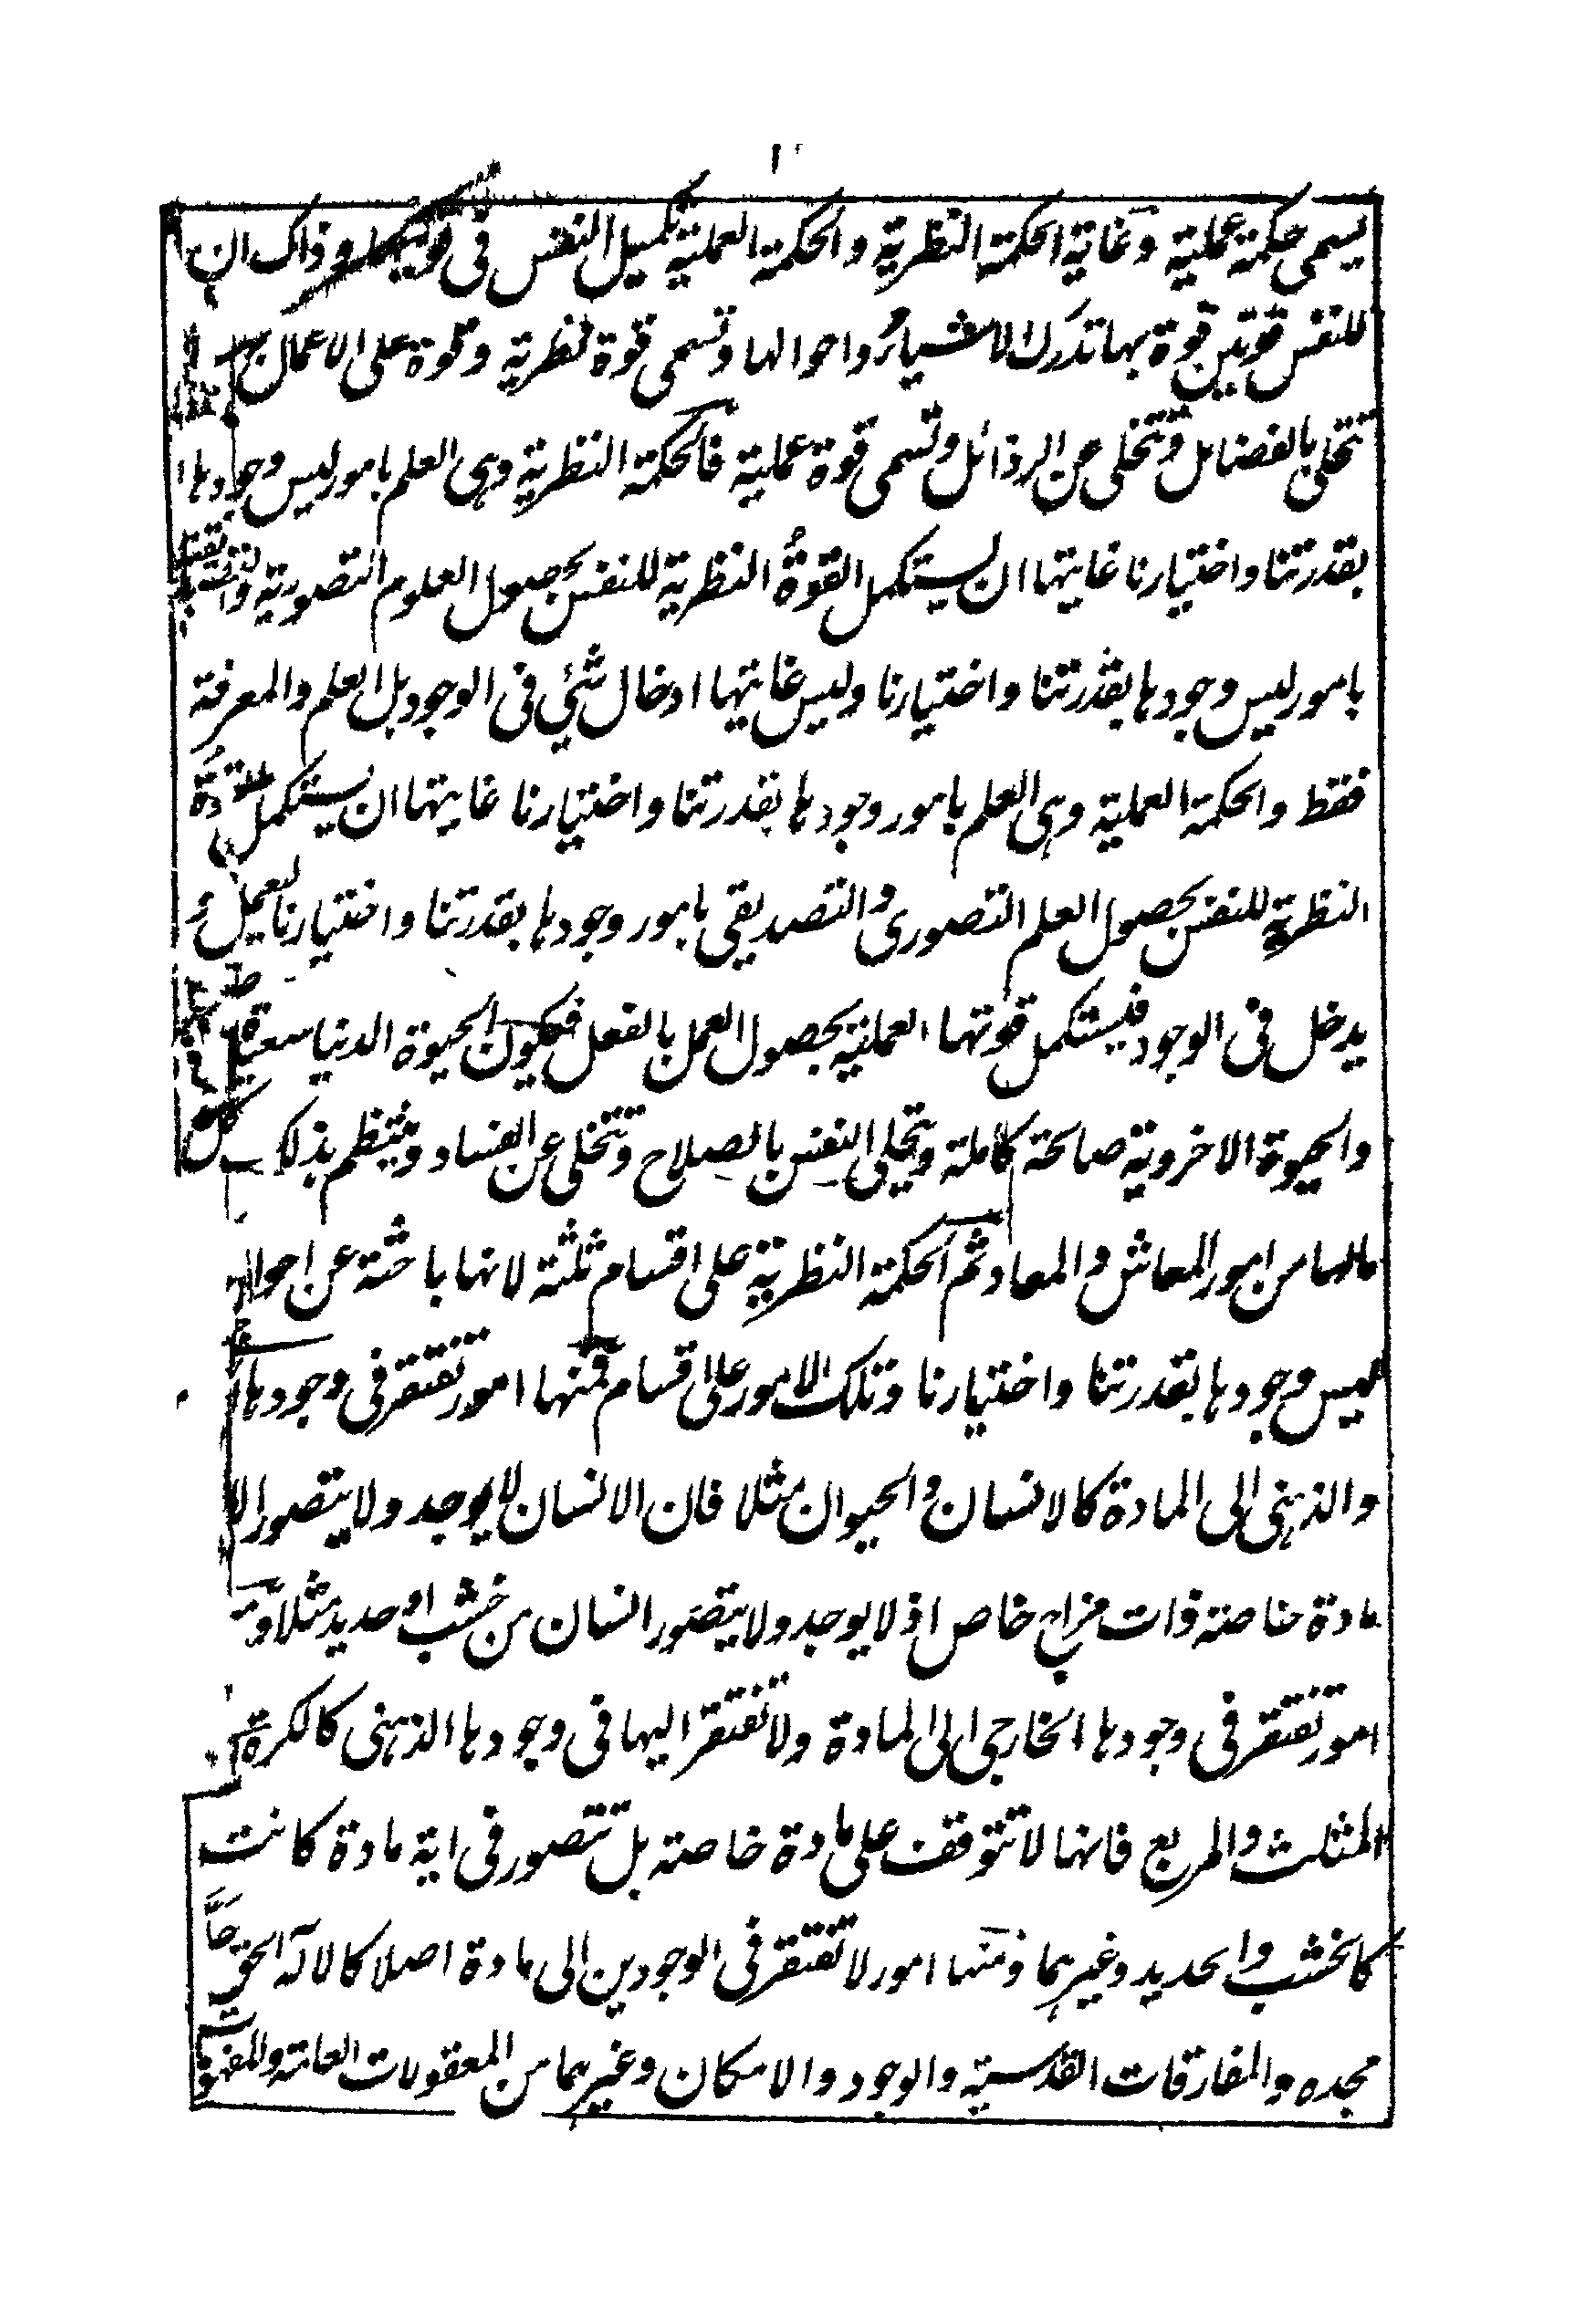 يسمى حكمة عملية وغاية الحكمة النظرية والحكمة العملية تكميل النفس فى قوتيها وذاك ان
للنفس قوتين قوة بها تدرك الاشياء واحوالها وتسمى قوة نظرية وقوة على الاعمال بها
تتحلى بالفضايل وتتخلى عن الرذائل وتسمى قوة عملية فالحكمة النظرية وهى العلم بامور ليس وجودها
بقدرتنا واختيارنا غايتها ان يستكمل القوة النظرية للنفس بحصول العلوم التصورية والتصديقية
بامور ليس وجودها بقدرتنا واختيارنا وليس غايتها ادخال شئي فى الوجود بل العلم والمعرفة
فقط والحكمة العملية وهى العلم بامور وجودها بقدرتنا واختيارنا غايتها ان يستكمل القوة
النظرية للنفس بحصول العلم التصورى والتصديقى بامور وجودها بقدرتنا واختيارنا لتعمل و
يدخل فى الوجود فيستكمل قوتها العملية بحصول العمل بالفعل فيكون الحيوة الدنيا سعيدة
والحيوة الاخروية صالحة كاملة وتحلى النفس بالصلاح وتتخلى عن الفساد وينتظم بذلك كل
مالها من امور المعاش والمعاد ثم الحكمة النظرية على اقسام ثلثة لانها باحثة عن احوال
ليس وجودها بقدرتنا واختيارنا وتلك الامور على اقسام فمنها امور تفتقر فى وجودها
والذهنى الى المادة كالانسان والحيوان مثلا فان الانسان لا يوجد ولا يتصور الا
مادة خاصة ذات مزاج خاص اذ لا يوجد ولا يتصور انسان من خشب او حديد مثلا و
امور تفتقر فى وجودها الخارجى الى المادة ولا تفتقر اليها فى وجودها الذهنى كالكرة
المثلث والمربع فانها لا تتوقف على مادة خاصة بل تتصور فى اية مادة كانت
كالخشب والحديد وغيرهما ومنها امور لا تفتقر فى الوجودين الى مادة اصلا كالاله الحق جل
مجده والمفارقات القدسية والوجود والامكان وغيرهما من المعقولات العامة والمفهومات